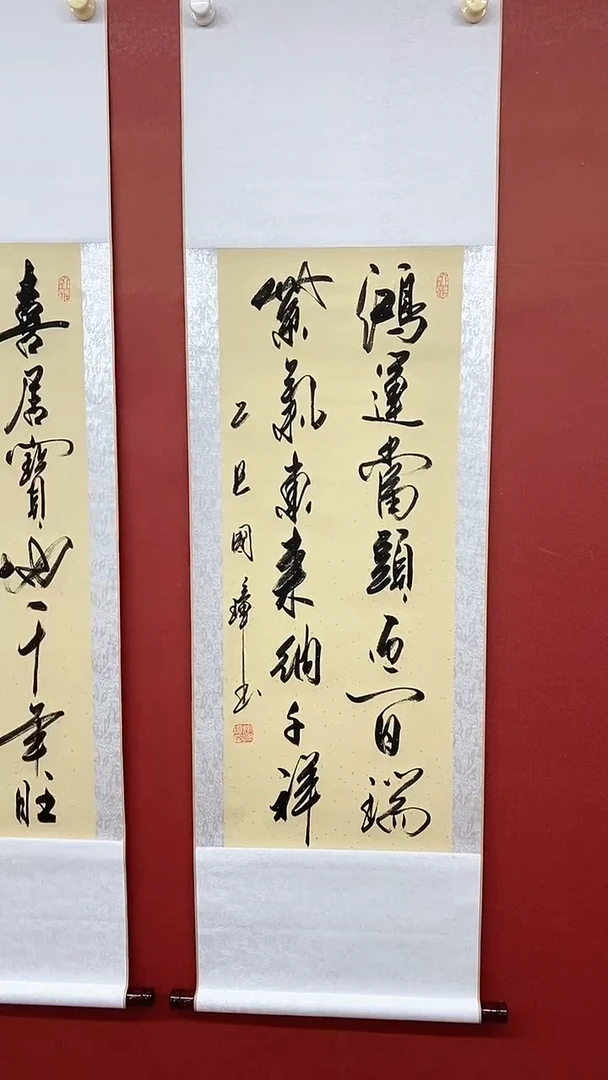 鴻運當頭迎百瑞
紫氣東來納千祥
乙巳國璋
喜居寶地千年旺